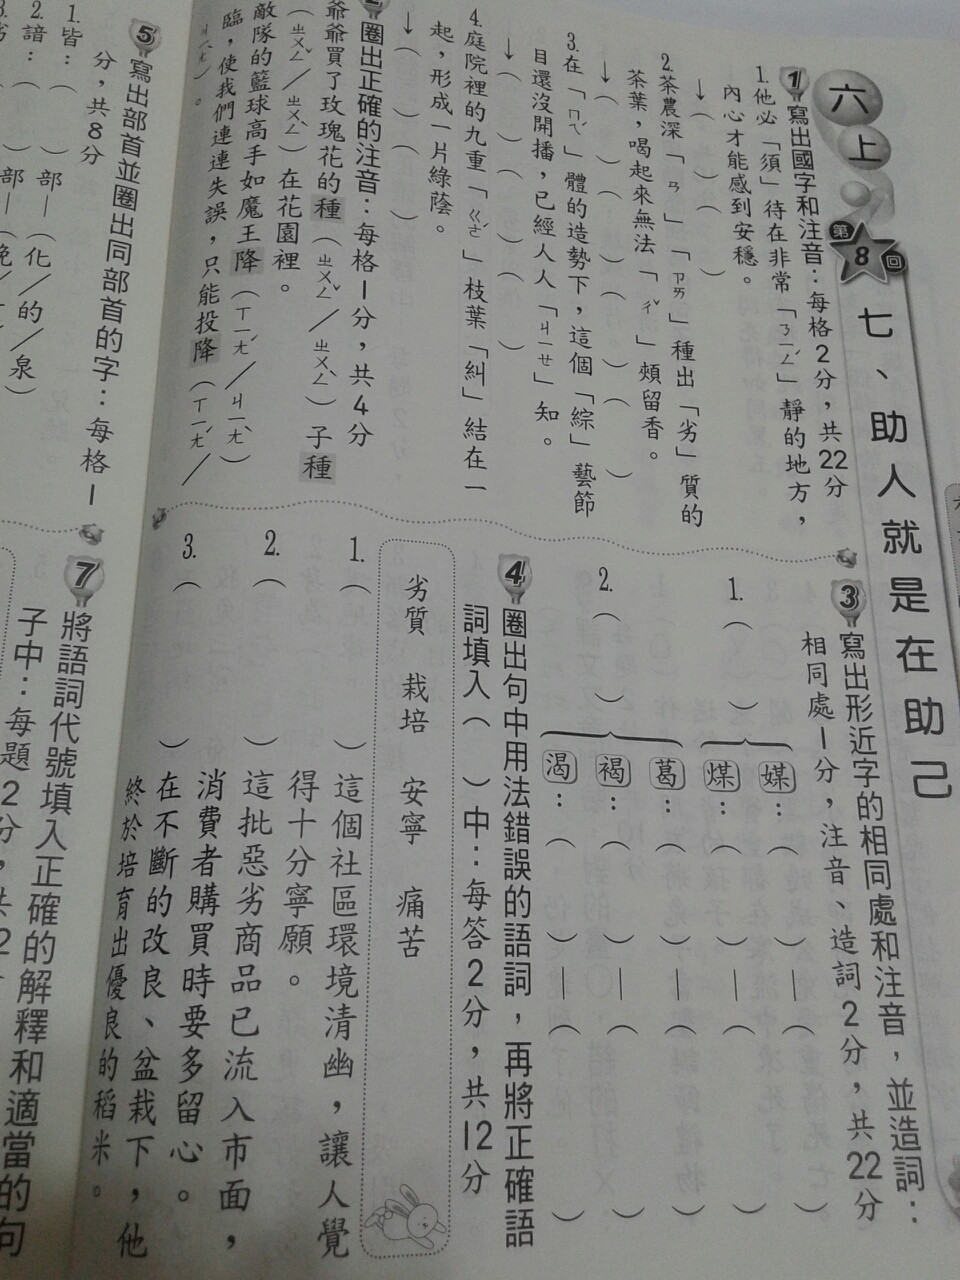 六上
第8回
七、助人就是在助己
1 寫出國字和注音：每格2分，共22分
1.他必「須」待在非常「ㄋㄧㄥˊ」靜的地方，
內心才能感到安穩。
↓（　）（　）
2.茶農深「ㄢ」「ㄗㄞ」種出「劣」質的
茶葉，喝起來無法「ㄔˇ」頰留香。
↓（　）（　）（　）（　）
3.在「ㄇㄟˊ」體的造勢下，這個「綜」藝節
目還沒開播，已經人人「ㄐㄧㄝ」知。
↓（　）（　）（　）
4.庭院裡的九重「ㄍㄜˊ」枝葉「糾」結在一
起，形成一片綠蔭。
↓（　）（　）
2 圈出正確的注音：每格1分，共4分
爺爺買了玫瑰花的種（ㄓㄨㄥˇ／ㄓㄨㄥˋ）子種
（ㄓㄨㄥˇ／ㄓㄨㄥˋ）在花園裡。
敵隊的籃球高手如魔王降（ㄒㄧㄤˊ／ㄐㄧㄤˋ）
臨，使我們連連失誤，只能投降（ㄒㄧㄤˊ／
ㄐㄧㄤˋ）。
3 寫出形近字的相同處和注音，並造詞：
相同處1分，注音、造詞2分，共22分
1.（　）
媒：（　）—（　）
煤：（　）—（　）
2.（　）
葛：（　）—（　）
褐：（　）—（　）
渴：（　）—（　）
4 圈出句中用法錯誤的語詞，再將正確語
詞填入（　）中：每答2分，共12分
劣質　栽培　安寧　痛苦
1.（　）這個社區環境清幽，讓人覺
得十分寧願。
2.（　）這批惡劣商品已流入市面，
消費者購買時要多留心。
3.（　）在不斷的改良、盆栽下，他
終於培育出優良的稻米。
5 寫出部首並圈出同部首的字：每格1
分，共8分
1.皆：（　）部—（化／的／泉）
2.諳：（　）部—（
7 將語詞代號填入正確的解釋和適當的句
子中：每題2分，共